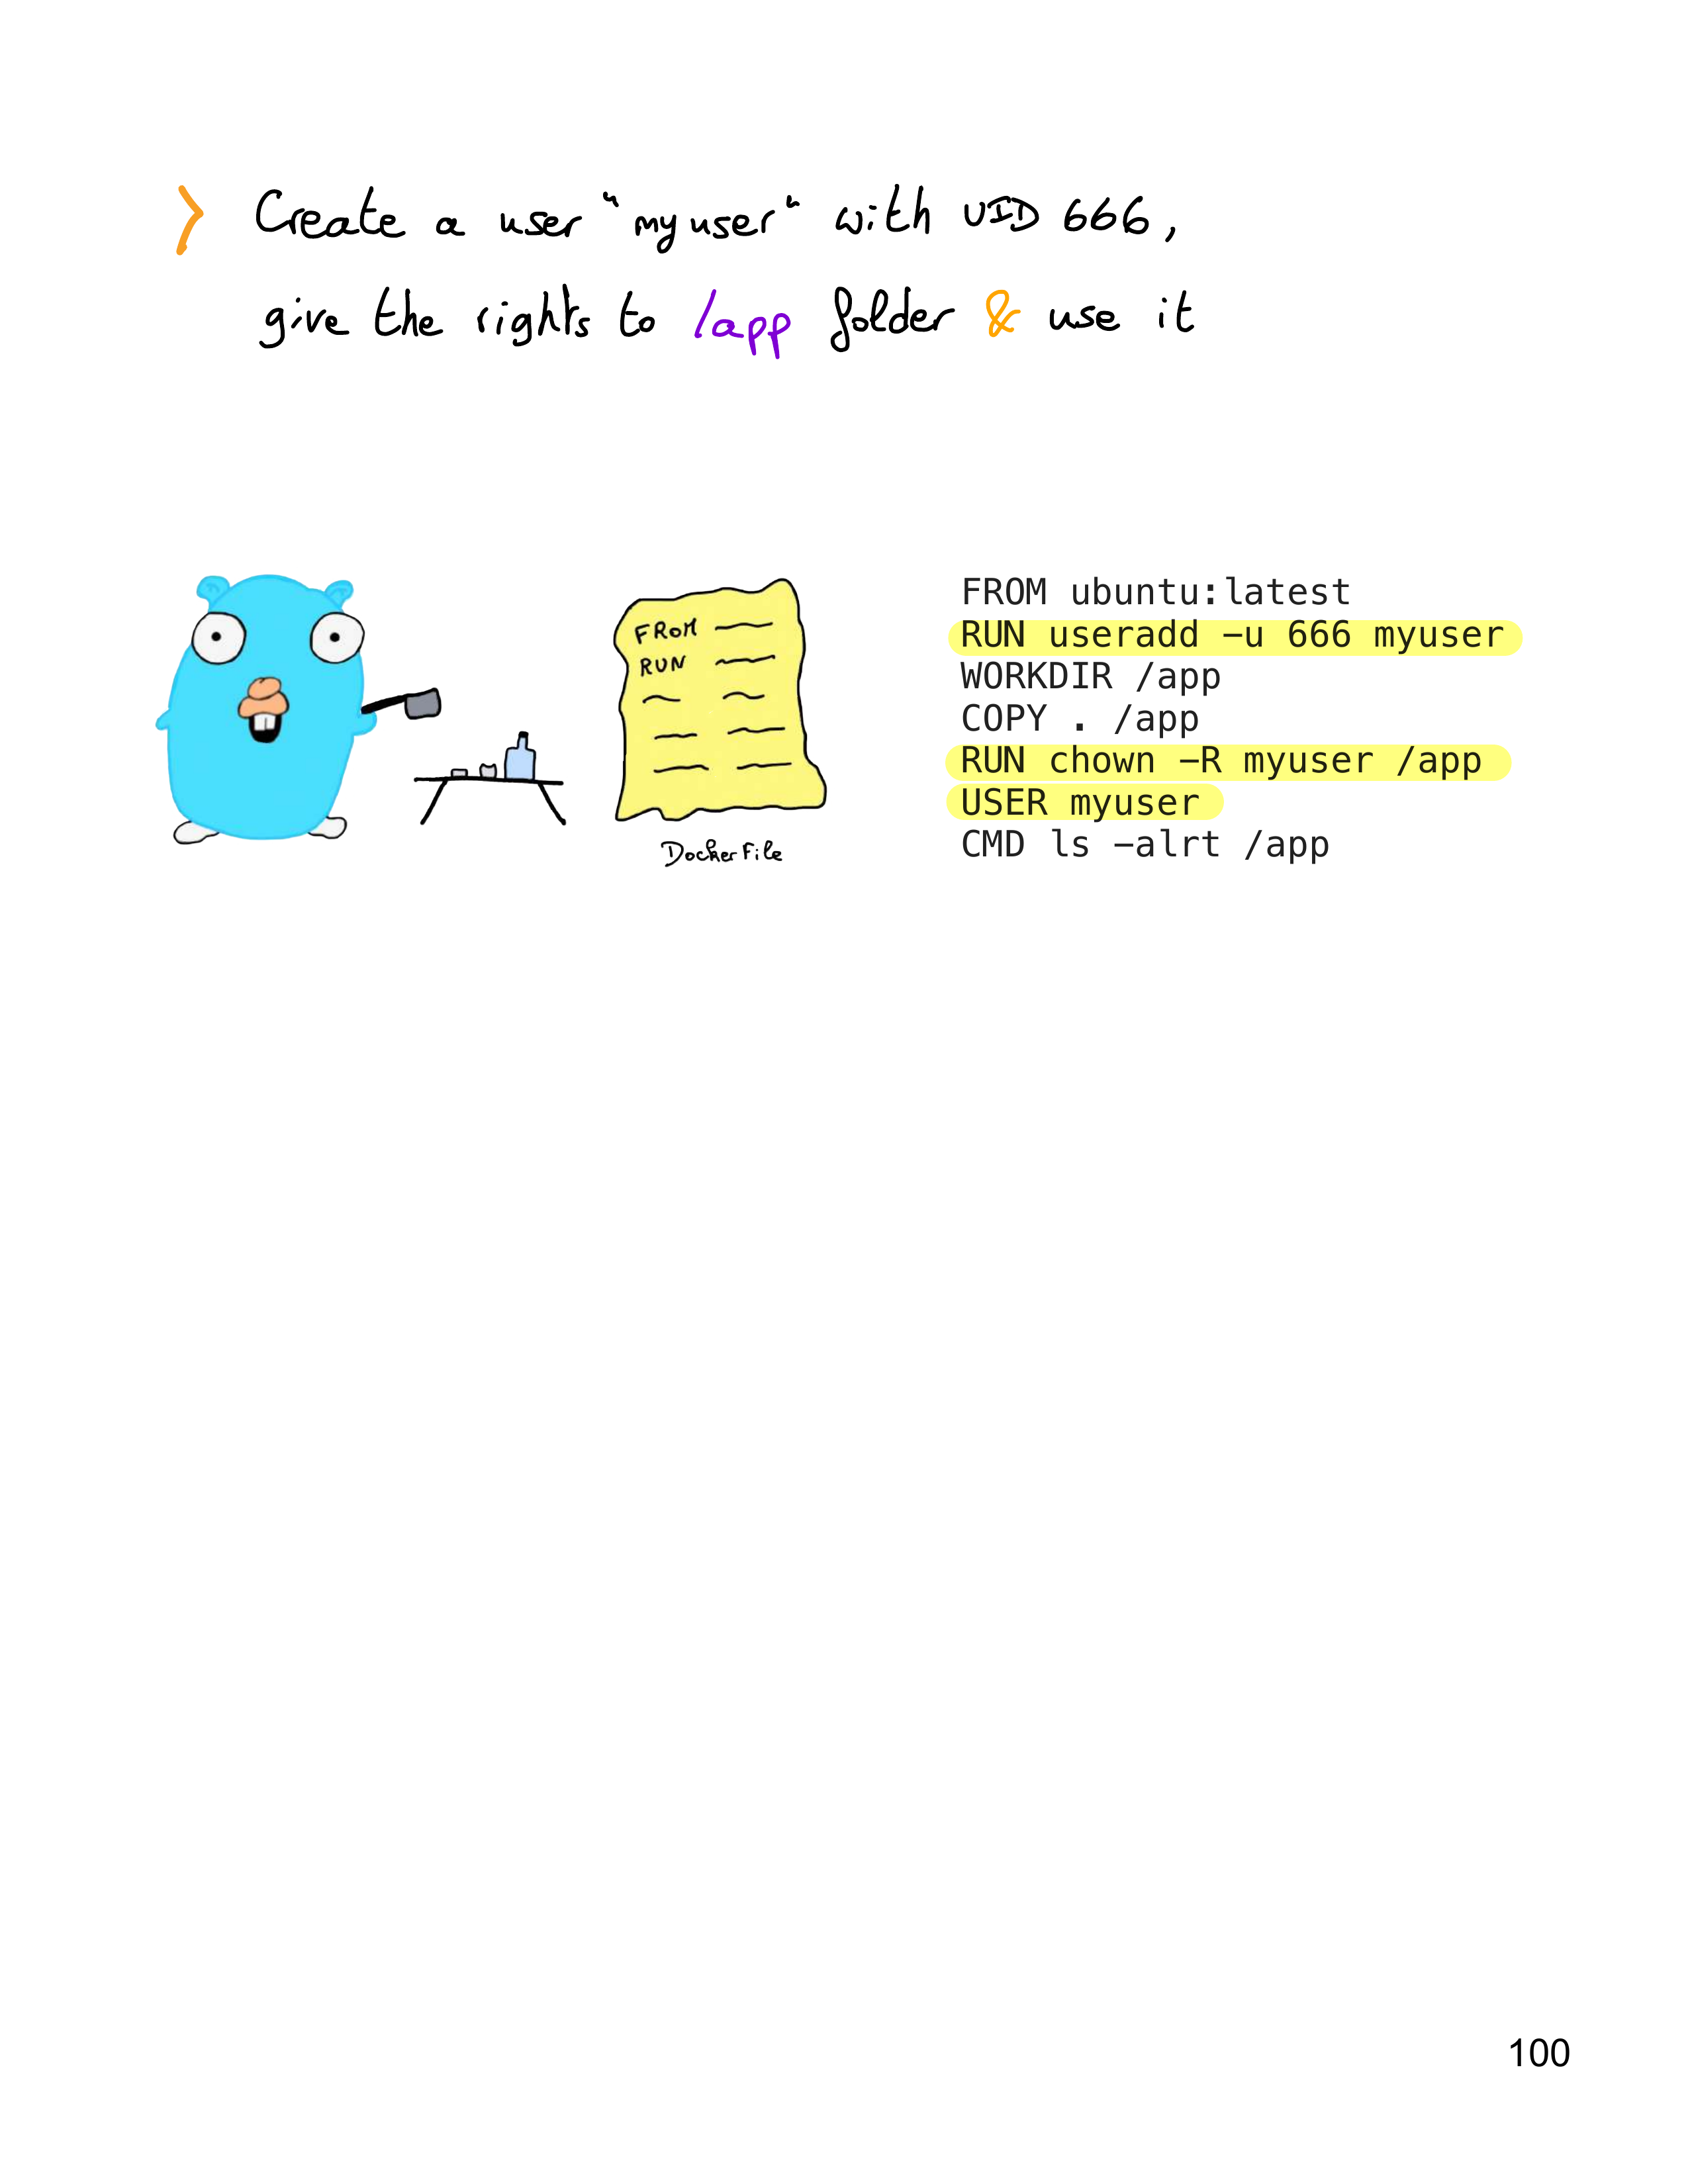 > Create a user "myuser" with UID 666,
give the rights to /app folder & use it
FROM
RUN
DockerFile
FROM ubuntu:latest
RUN useradd -u 666 myuser
WORKDIR /app
COPY . /app
RUN chown -R myuser /app
USER myuser
CMD ls -alrt /app
100